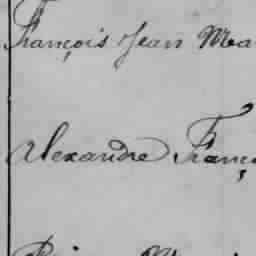 François Jean Mea
Alexandre Franç